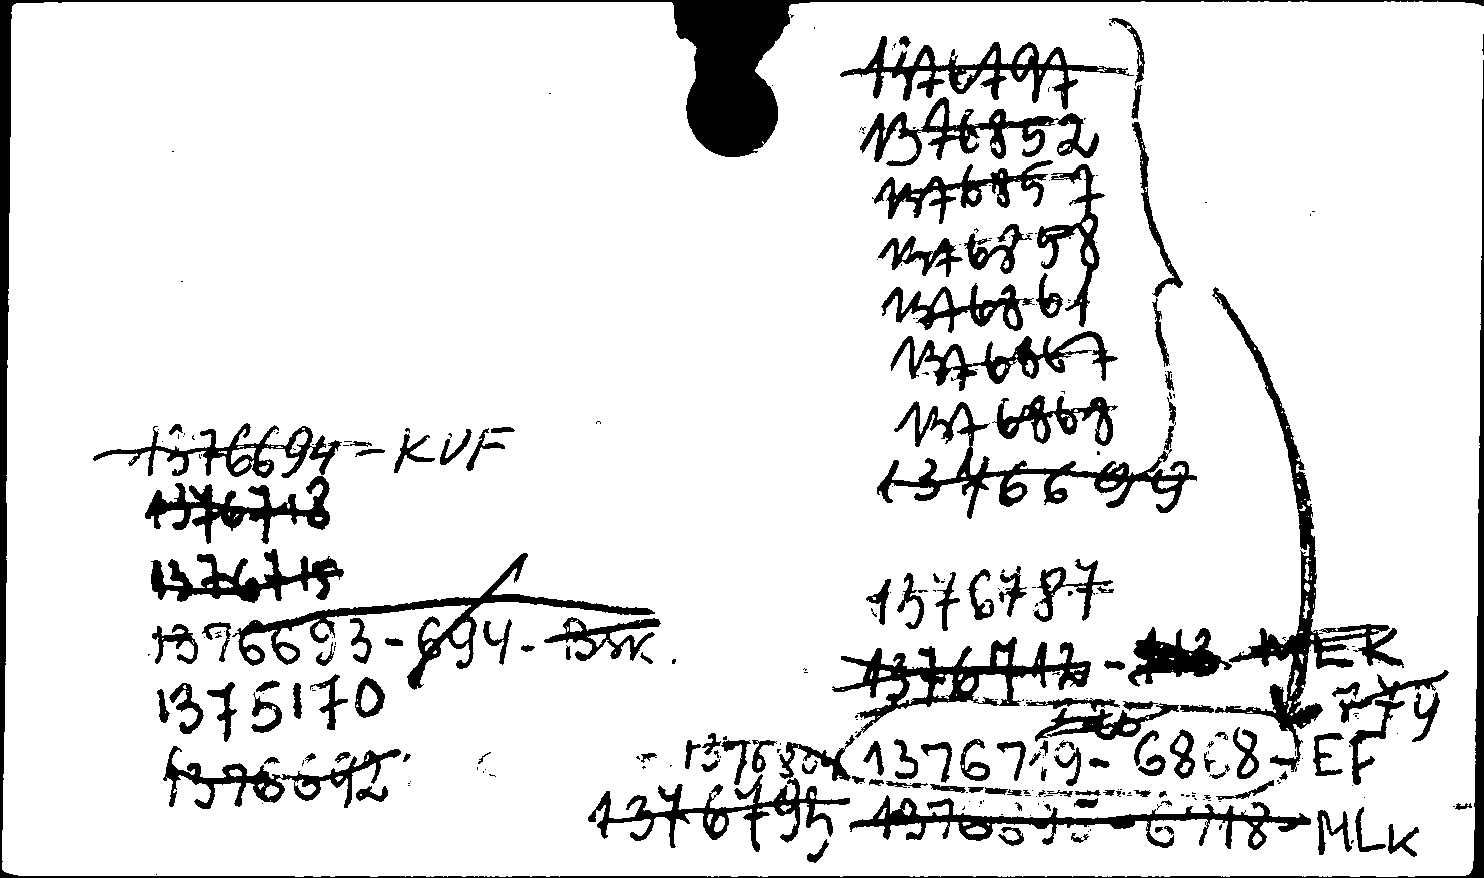 1376797
1376852
1376857
1376858
1376861
1376867
1376868
1376699
1376694 - KUF
1376718
1376715
1376693 - 694 - BSK.
1375170
1376692
1376787
1376712 - MEK
774
1376719 - 6868 - EF
1376804
1376795
1376695 - 6718 - MLK